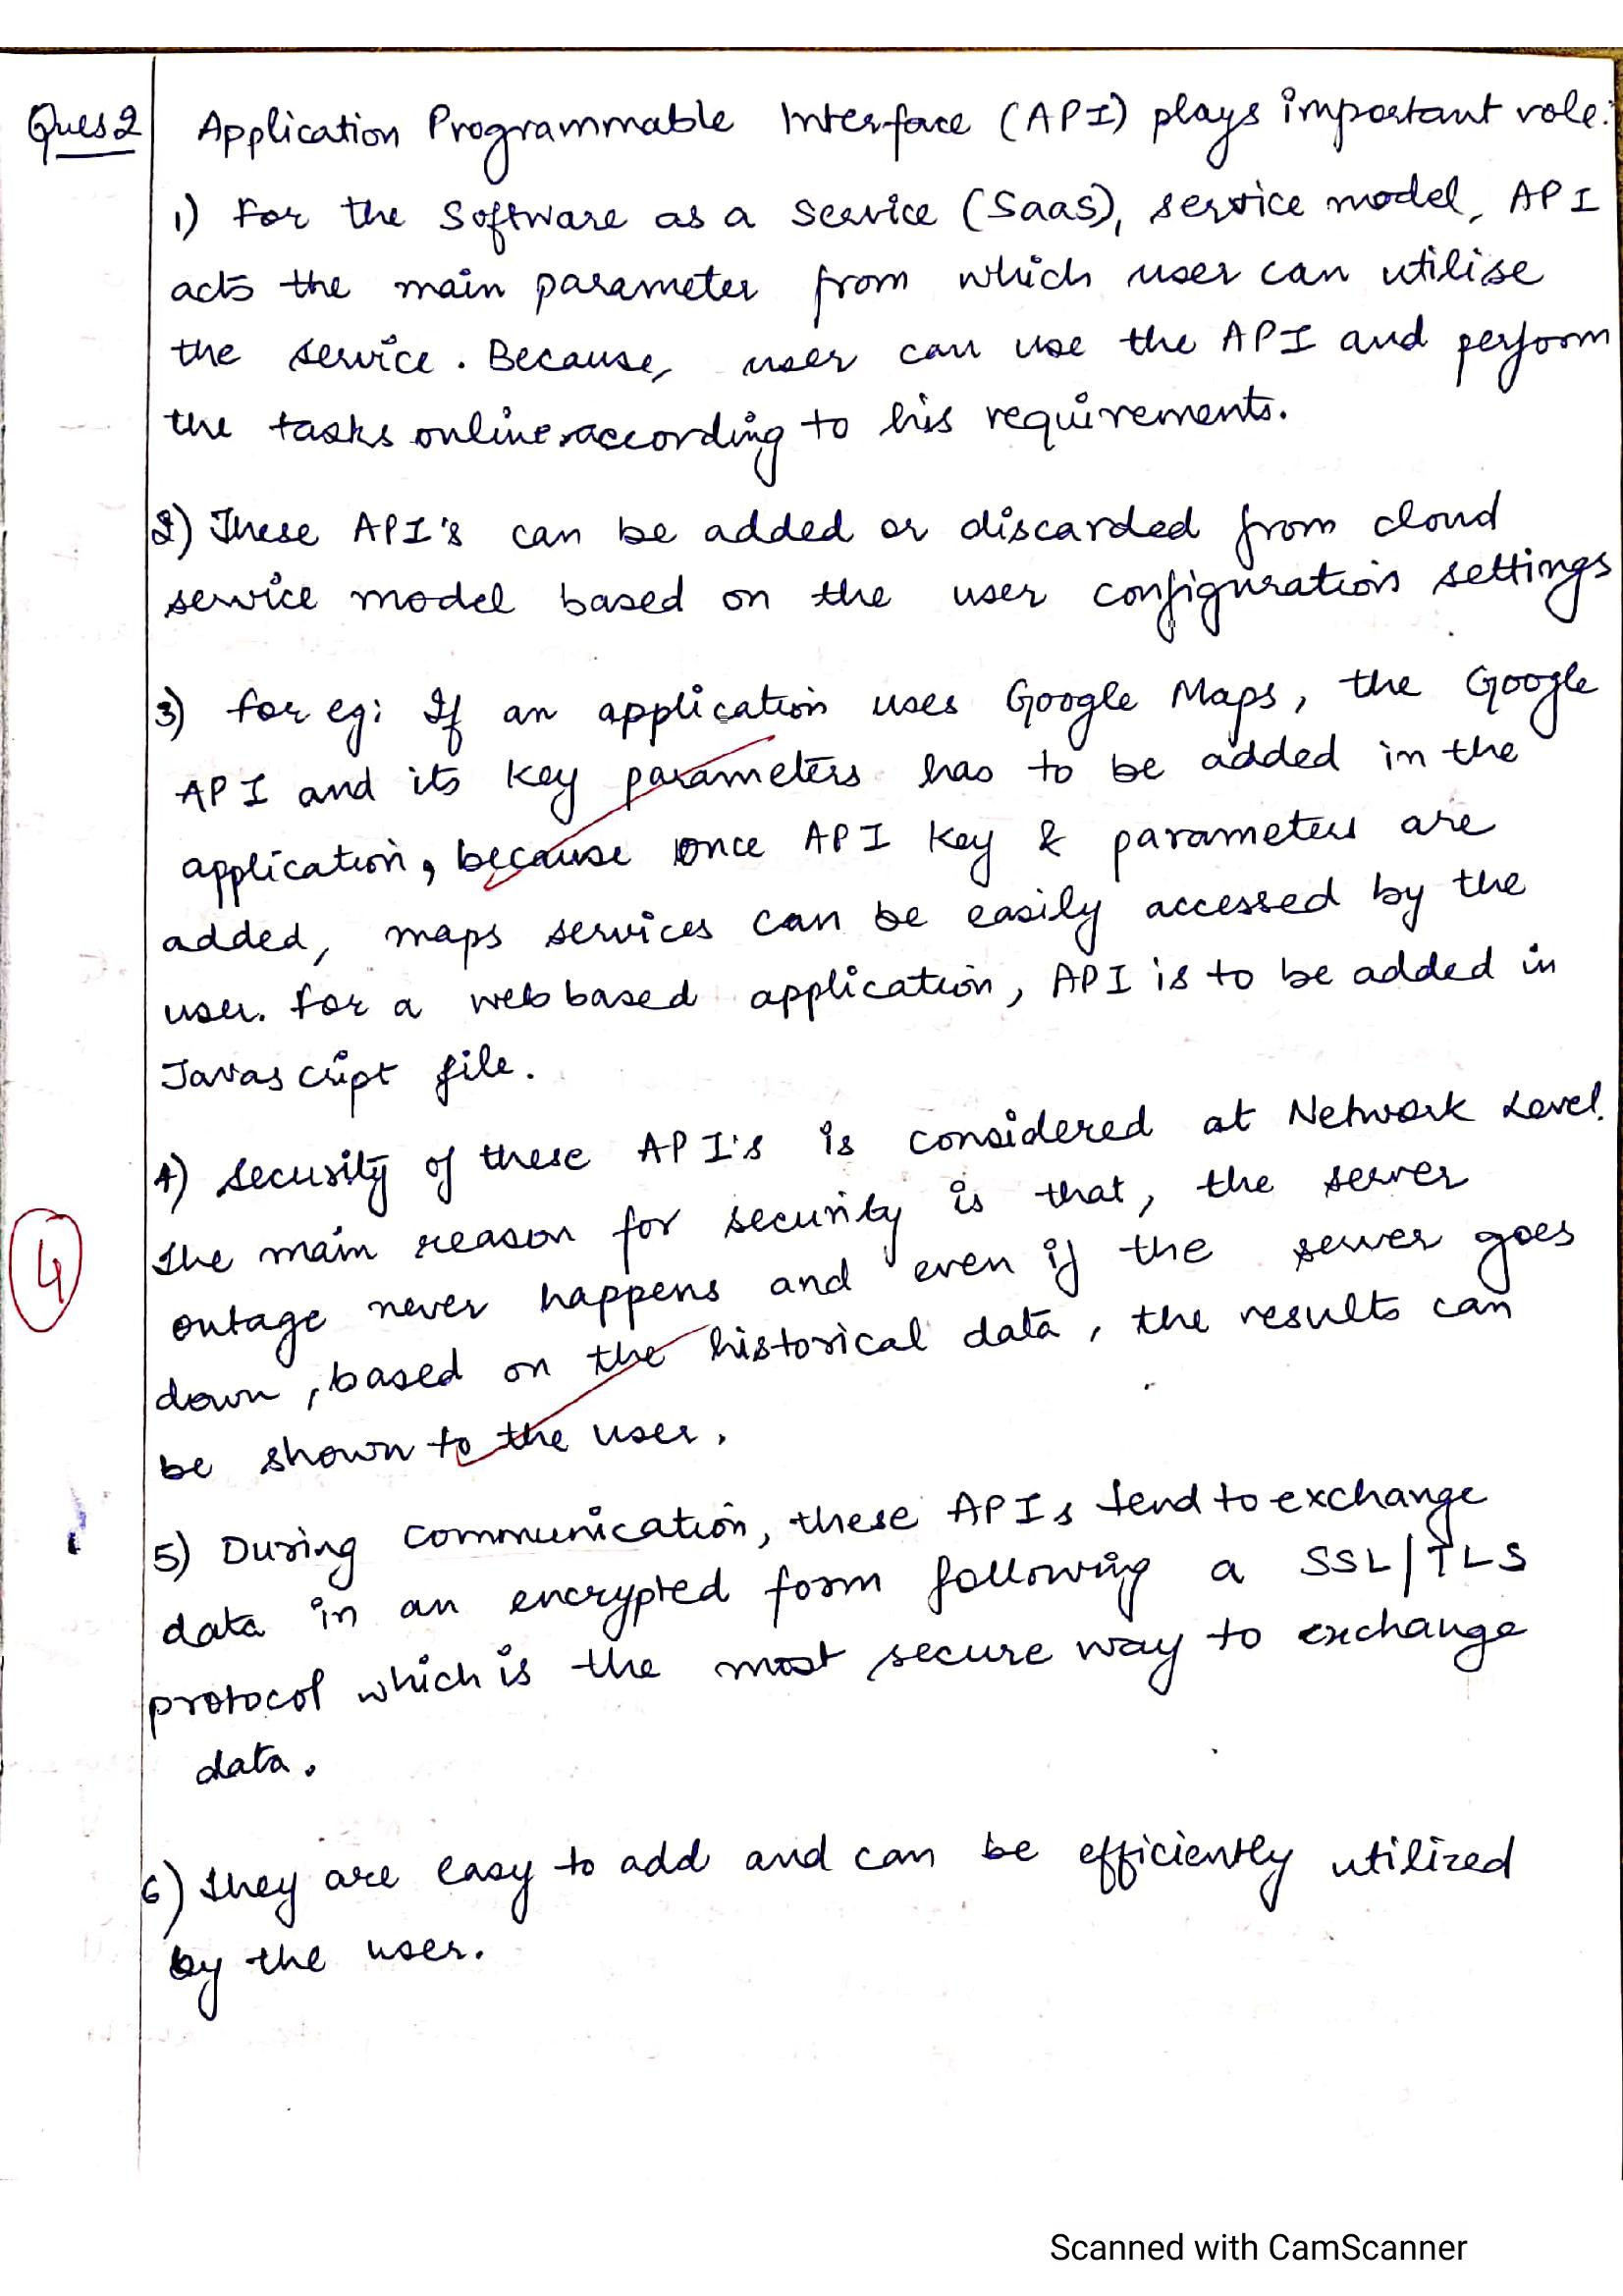 Ques 2 Application Programmable Interface (API) plays important role:
1) For the Software as a Service (SaaS), service model, API
acts the main parameter from which user can utilise
the service. Because, user can use the API and perform
the tasks online according to his requirements.
2) These API's can be added or discarded from cloud
service model based on the user configuration settings
3) for eg: If an application uses Google Maps, the Google
API and its key parameters has to be added in the
application, because once API key & parameters are
added, maps services can be easily accessed by the
user. for a web based application, API is to be added in
Javascript file.
4) Security of these API's is considered at Network Level.
The main reason for security is that, the server
outage never happens and even if the server goes
4
down, based on the historical data, the results can
be shown to the user.
5) During communication, these APIs tend to exchange
data in an encrypted form following a SSL/TLS
protocol which is the most secure way to exchange
data.
6) They are easy to add and can be efficiently utilized
by the user.
Scanned with CamScanner